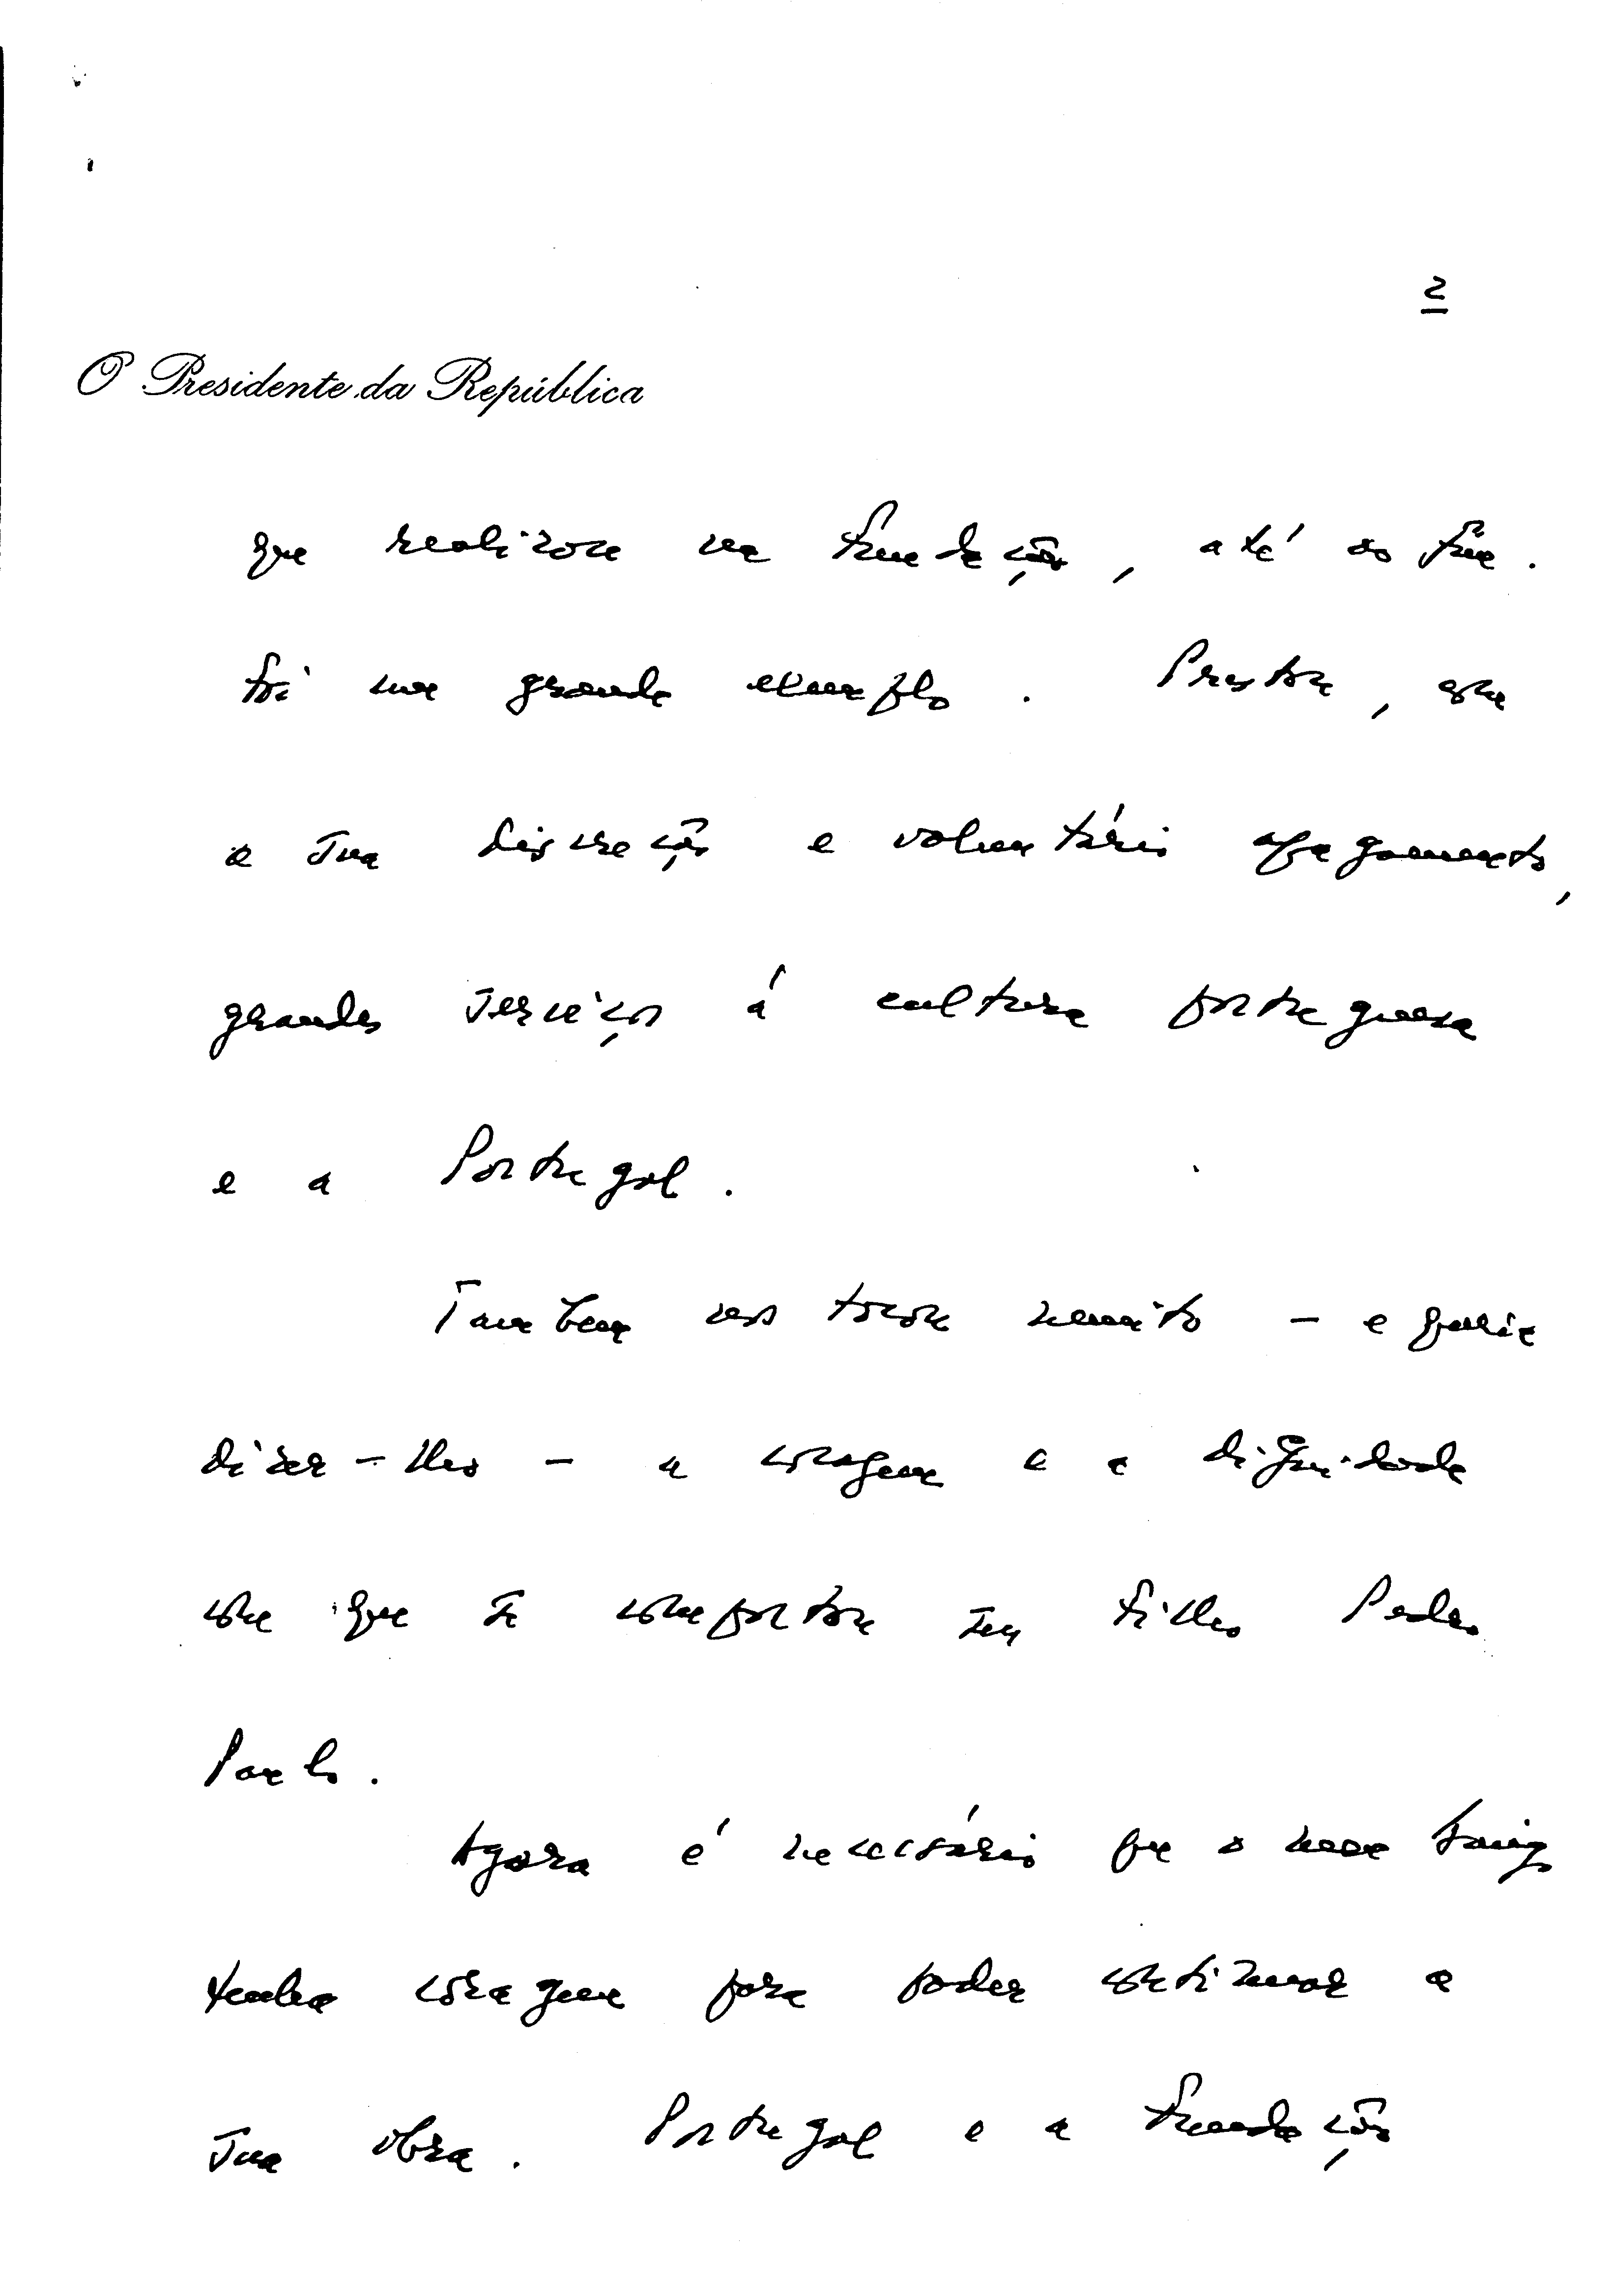 2
O Presidente da República
que realizou na Fundação, até ao fim.
Foi um grande exemplo. Prestou, com
a sua discreção e voluntário apagamento,
grandes serviços à cultura portuguesa
e a Portugal.
Tambem nos tocou muito - e queria
dizer-lho - a coragem e a dignidade
com que se comportou seu filho Pedro
Paulo.
Agora é necessário que o meu Amigo
tenha coragem para poder continuar a
sua obra. Portugal e a Fundação